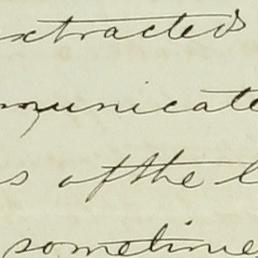 xtracted
municate
s of the l
sometime